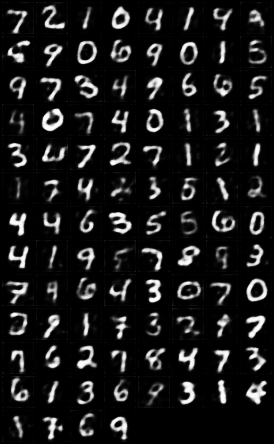 7 2 1 0 4 1 4
5 9 0 6 9 0 1 5
9 7 3 4 9 6 6 5
4 0 7 4 0 1 3 1
3 7 2 7 1 2 1
1 7 4 2 3 5 1 2
4 4 6 3 5 5 6 0
4 1 9 5 7 8 9 3
7 4 6 4 3 0 7 0
2 9 1 7 3 2 9 7
7 6 2 7 8 4 7 3
6 1 3 6 9 3 1 4
1 7 6 9